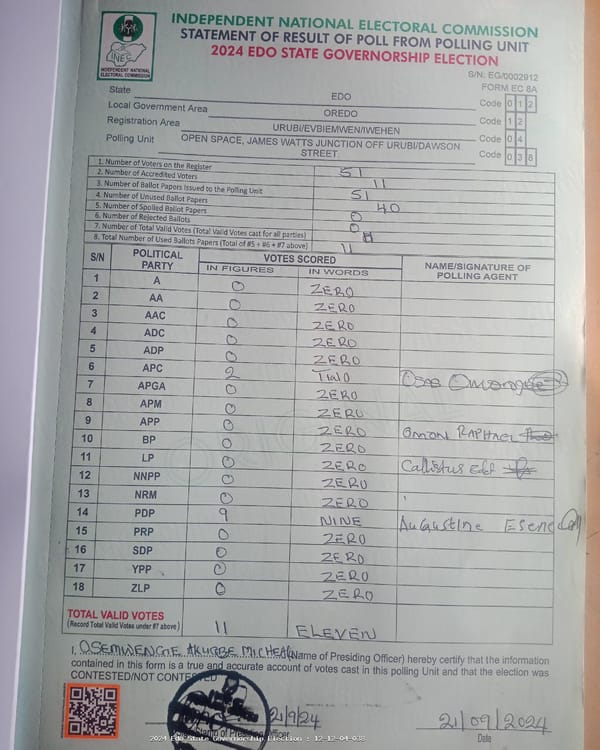 INDEPENDENT NATIONAL ELECTORAL COMMISSION
STATEMENT OF RESULT OF POLL FROM POLLING UNIT
2024 EDO STATE GOVERNORSHIP ELECTION
INEC
INDEPENDENT NATIONAL ELECTORAL COMMISSION
S/N: EG/0002912
FORM EC 8A
State EDO Code 0 1 2
Local Government Area OREDO Code 1 2
Registration Area URUBI/EVBIEMWEN/IWEHEN Code 0 4
Polling Unit OPEN SPACE, JAMES WATTS JUNCTION OFF URUBI/DAWSON STREET. Code 0 3 8
1. Number of Voters on the Register 51
2. Number of Accredited Voters 11
3. Number of Ballot Papers Issued to the Polling Unit 51
4. Number of Unused Ballot Papers 40
5. Number of Spoiled Ballot Papers 0
6. Number of Rejected Ballots 0
7. Number of Total Valid Votes (Total Valid Votes cast for all parties)
8. Total Number of Used Ballots Papers (Total of #5 + #6 + #7 above) 11
S/N POLITICAL PARTY VOTES SCORED NAME/SIGNATURE OF POLLING AGENT
IN FIGURES IN WORDS
1 A 0 ZERO
2 AA 0 ZERO
3 AAC 0 ZERO
4 ADC 0 ZERO
5 ADP 0 ZERO
6 APC 2 TWO Osas
7 APGA 0 ZERO
8 APM 0 ZERO
9 APP 0 ZERO OMON RAPHAEL
10 BP 0 ZERO
11 LP 0 ZERO Callistus
12 NNPP 0 ZERO
13 NRM 0 ZERO
14 PDP 9 NINE AUGUSTINE
15 PRP 0 ZERO
16 SDP 0 ZERO
17 YPP 0 ZERO
18 ZLP 0 ZERO
TOTAL VALID VOTES 11 ELEVEN
(Record Total Valid Votes under #7 above)
I, OSEMWENGIE AKUGBE MICHEAL (Name of Presiding Officer) hereby certify that the information
contained in this form is a true and accurate account of votes cast in this polling Unit and that the election was
CONTESTED/NOT CONTESTED
21/9/24 21/09/2024
of Presiding Officer Date
2024 Edo State Governorship Election : 12-12-04-038